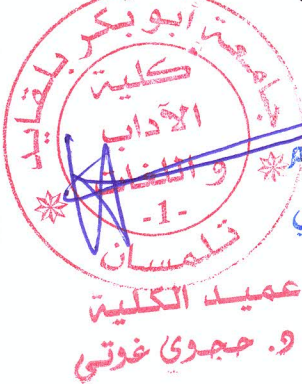 جامعة أبو بكر بلقايد
كلية
الآداب
و اللغات
-1-
تلمسان
عميد الكلية
د. حجوي غوتي